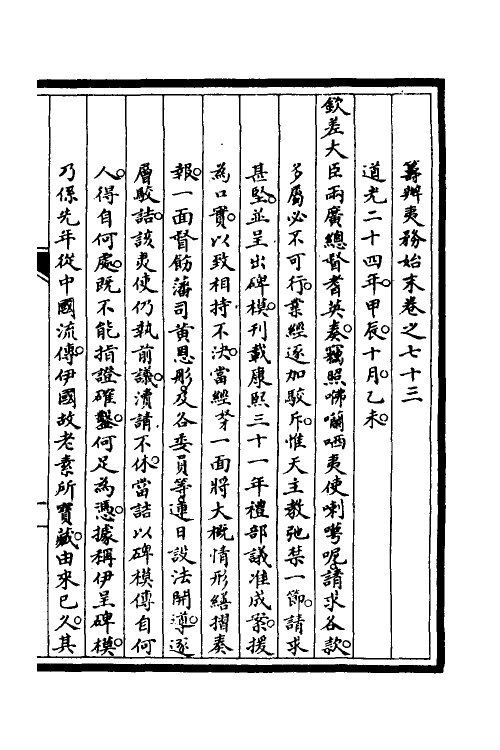 籌辦夷務始末卷之七十三
道光二十四年甲辰十月乙未
欽差大臣兩廣總督耆英奏竊照咈囒哂夷使喇嘮呢請求各款
多屬必不可行業經逐加駁斥惟天主教弛禁一節請求
甚堅並呈出碑模刊載康熙三十一年禮部議准成案援
為口實以致相持不決當經奴才一面將大概情形繕摺奏
報一面督飭藩司黃恩彤及各委員等連日設法開導逐
層駁詰該夷使仍執前議瀆請不休當詰以碑模傳自何
人得自何處既不能指證確鑿何足為憑據稱伊呈碑模
乃係先年從中國流傳伊國故老素所寶藏由來已久其